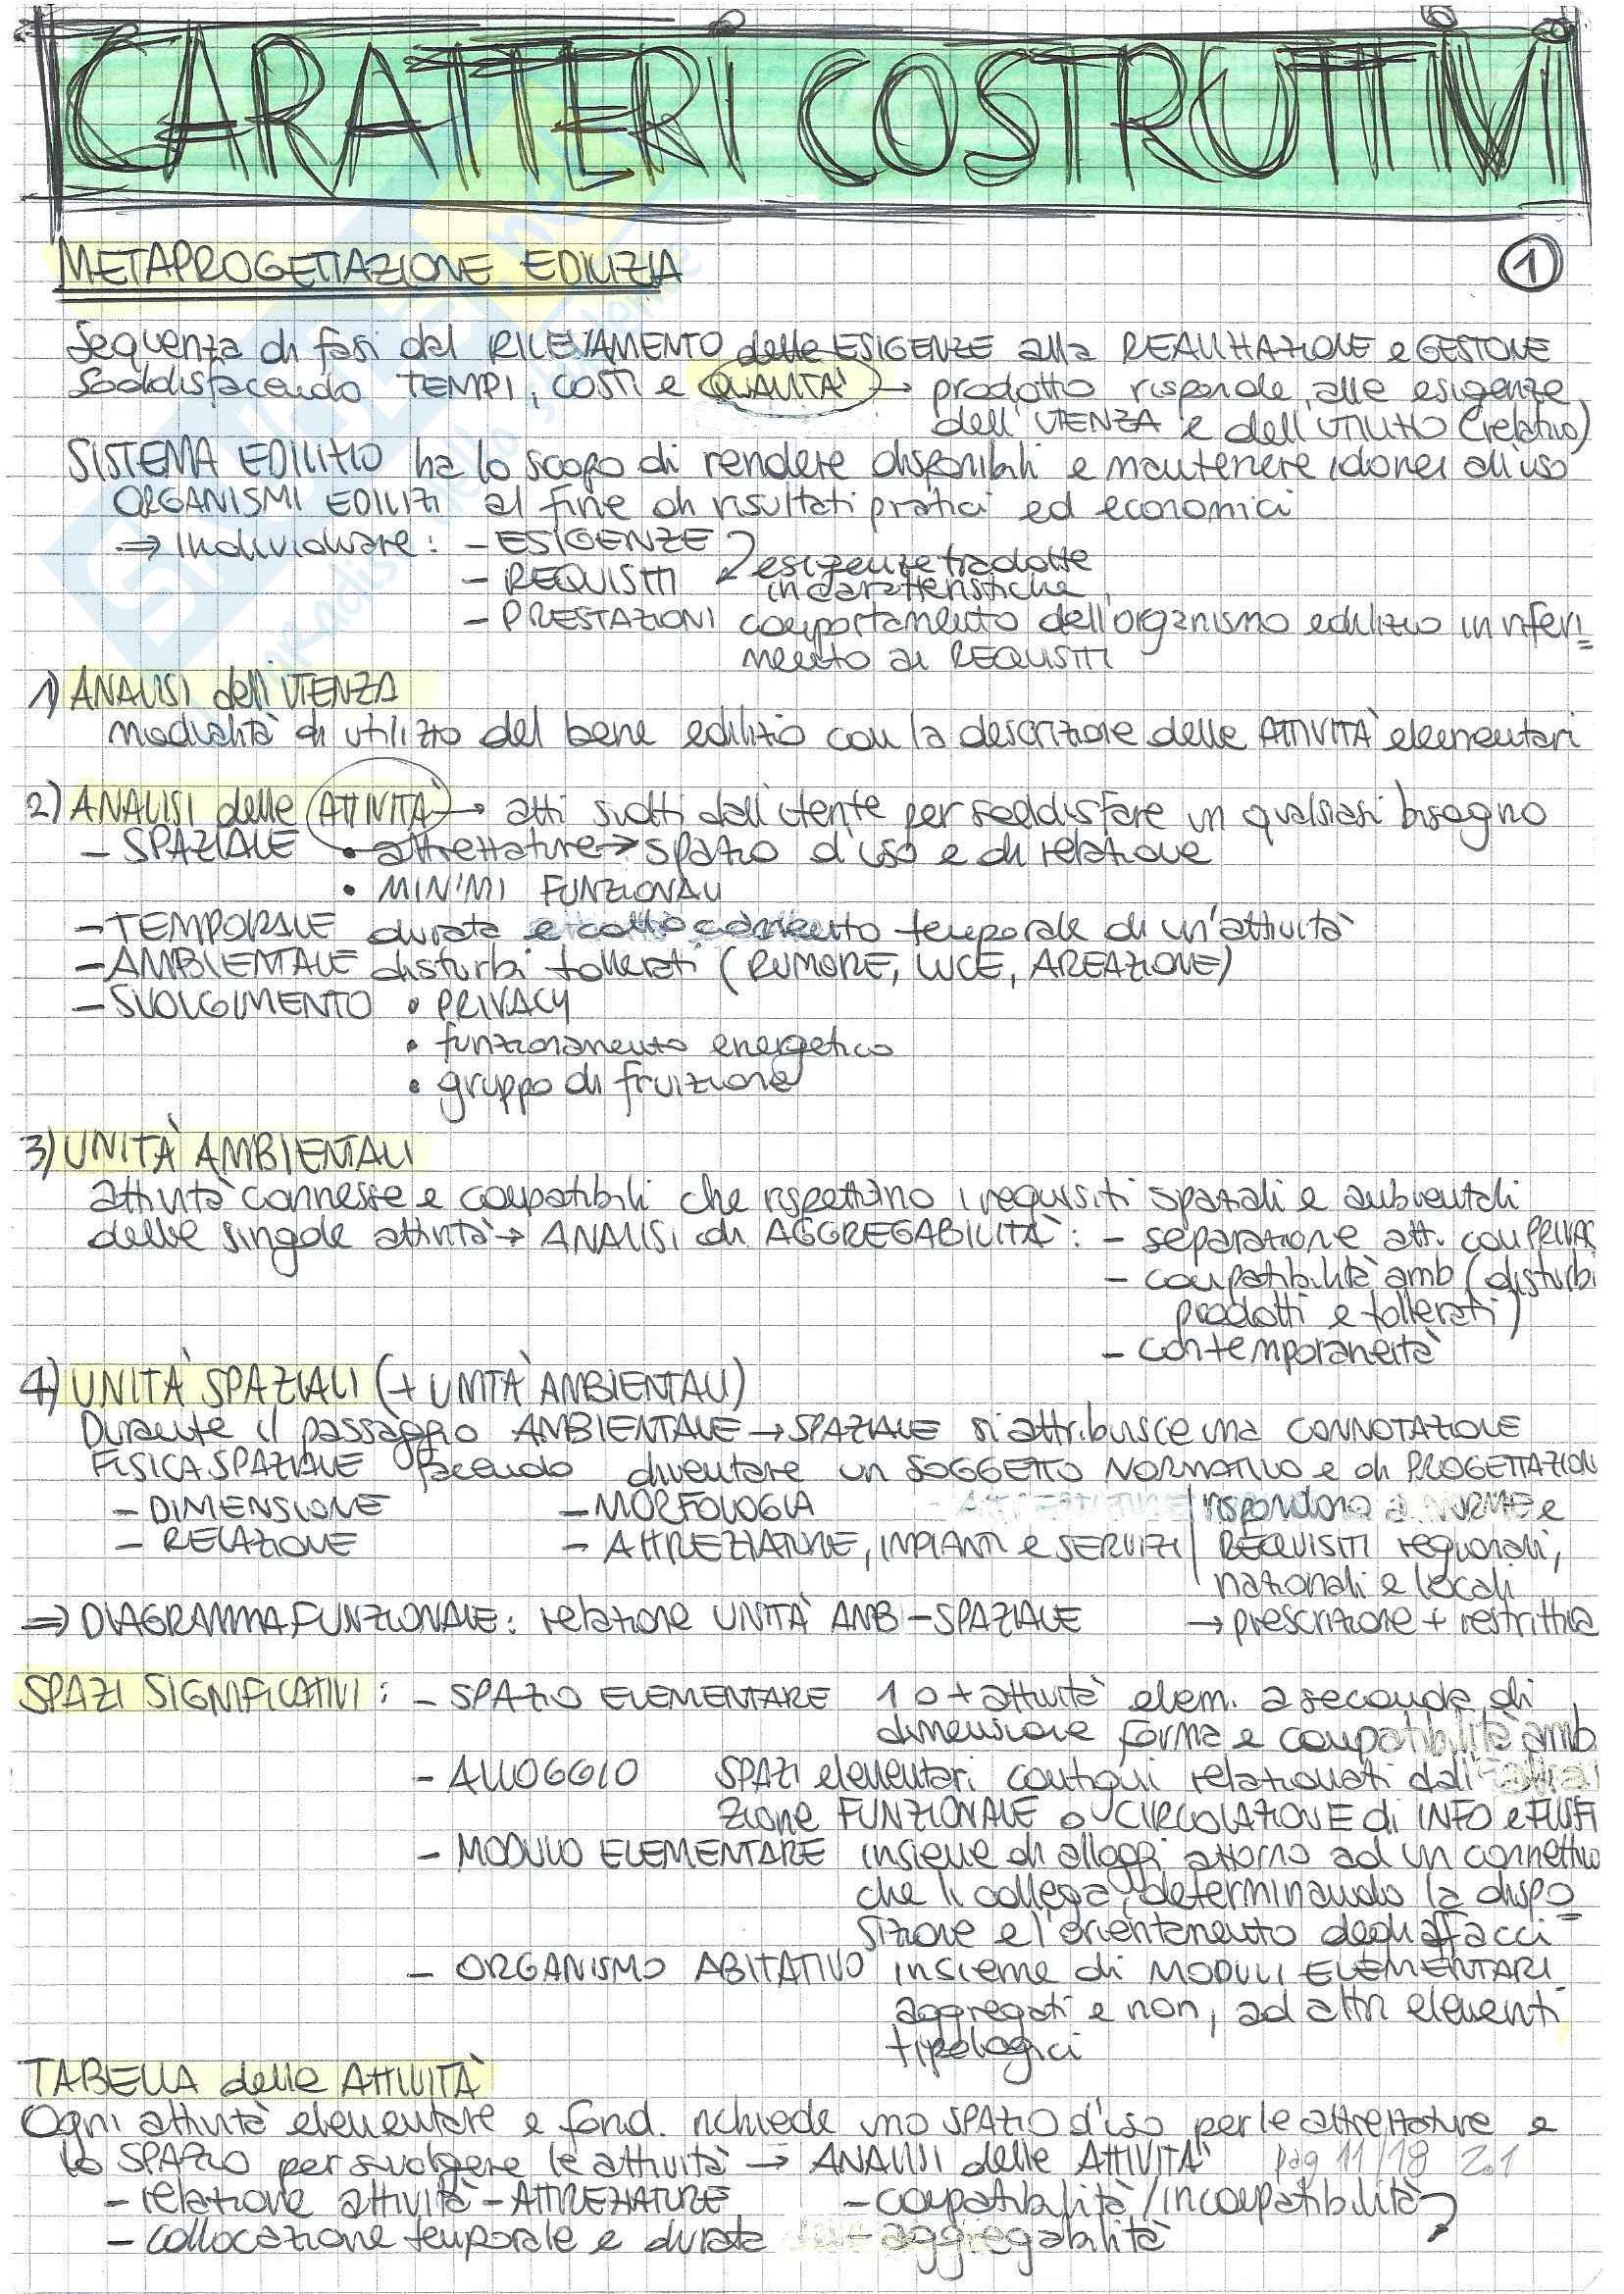 CARATTERI COSTRUTTIVI
METAPROGETTAZIONE EDILIZIA
1
Sequenza di fasi dal RILEVAMENTO delle ESIGENZE alla REALIZZAZIONE e GESTIONE
soddisfacendo TEMPI, COSTI e QUALITÀ → prodotto risponde alle esigenze
dell'UTENZA e dell'UTILITÀ (relativo)
SISTEMA EDILIZIO ha lo scopo di rendere disponibili e mantenere idonei all'uso
ORGANISMI EDILIZI al fine di risultati pratici ed economici
⇒ Individuare: - ESIGENZE
esigenze tradotte
- REQUISITI
in caratteristiche
- PRESTAZIONI comportamento dell'organismo edilizio in riferi=
mento ai REQUISITI
1) ANALISI dell'UTENZA
modalità di utilizzo del bene edilizio con la descrizione delle ATTIVITÀ elementari
2) ANALISI delle ATTIVITÀ → atti svolti dall'utente per soddisfare un qualsiasi bisogno
- SPAZIALE • attrezzature → spazio d'uso e di relazione
• MINIMI FUNZIONALI
- TEMPORALE durata e collocamento temporale di un'attività
- AMBIENTALE disturbi tollerati (RUMORE, LUCE, AREAZIONE)
- SVOLGIMENTO • PRIVACY
• funzionamento energetico
• gruppo di fruizione
3) UNITÀ AMBIENTALI
attività connesse e compatibili che rispettano i requisiti spaziali e ambientali
delle singole attività → ANALISI di AGGREGABILITÀ: - separazione att. con PRIVAC
- compatibilità amb (disturbi
prodotti e tollerati)
- contemporaneità
4) UNITÀ SPAZIALI (+ UNITÀ AMBIENTALI)
Durante il passaggio AMBIENTALE → SPAZIALE si attribuisce una CONNOTAZIONE
FISICA SPAZIALE facendo diventare un SOGGETTO NORMATIVO e di PROGETTAZION
- DIMENSIONE - MORFOLOGIA rispondono a NORME e
- RELAZIONE - ATTREZZATURE, IMPIANTI e SERVIZI REQUISITI regionali,
nazionali e locali
⇒ DIAGRAMMA FUNZIONALE: relazione UNITÀ AMB - SPAZIALE → prescrizione + restrittiva
SPAZI SIGNIFICATIVI: - SPAZIO ELEMENTARE 1 o + attività elem. a seconda di
dimensione forma e compatibilità amb
- ALLOGGIO SPAZI elementari contigui relazionati dall'
zione FUNZIONALE o CIRCOLAZIONE di INFO e FLUSSI
- MODULO ELEMENTARE insieme di alloggi attorno ad un connettivo
che li collega, determinando la dispo=
sizione e l'orientamento degli affacci
- ORGANISMO ABITATIVO insieme di MODULI ELEMENTARI
aggregati e non, ad altri elementi
tipologici
TABELLA delle ATTIVITÀ
Ogni attività elementare e fond. richiede uno SPAZIO d'uso per le attrezzature e
lo SPAZIO per svolgere le attività → ANALISI delle ATTIVITÀ pag 11/18 2.1
- relazione attività - ATTREZZATURE - compatibilità/incompatibilità
- collocazione temporale e durata - aggregabilità